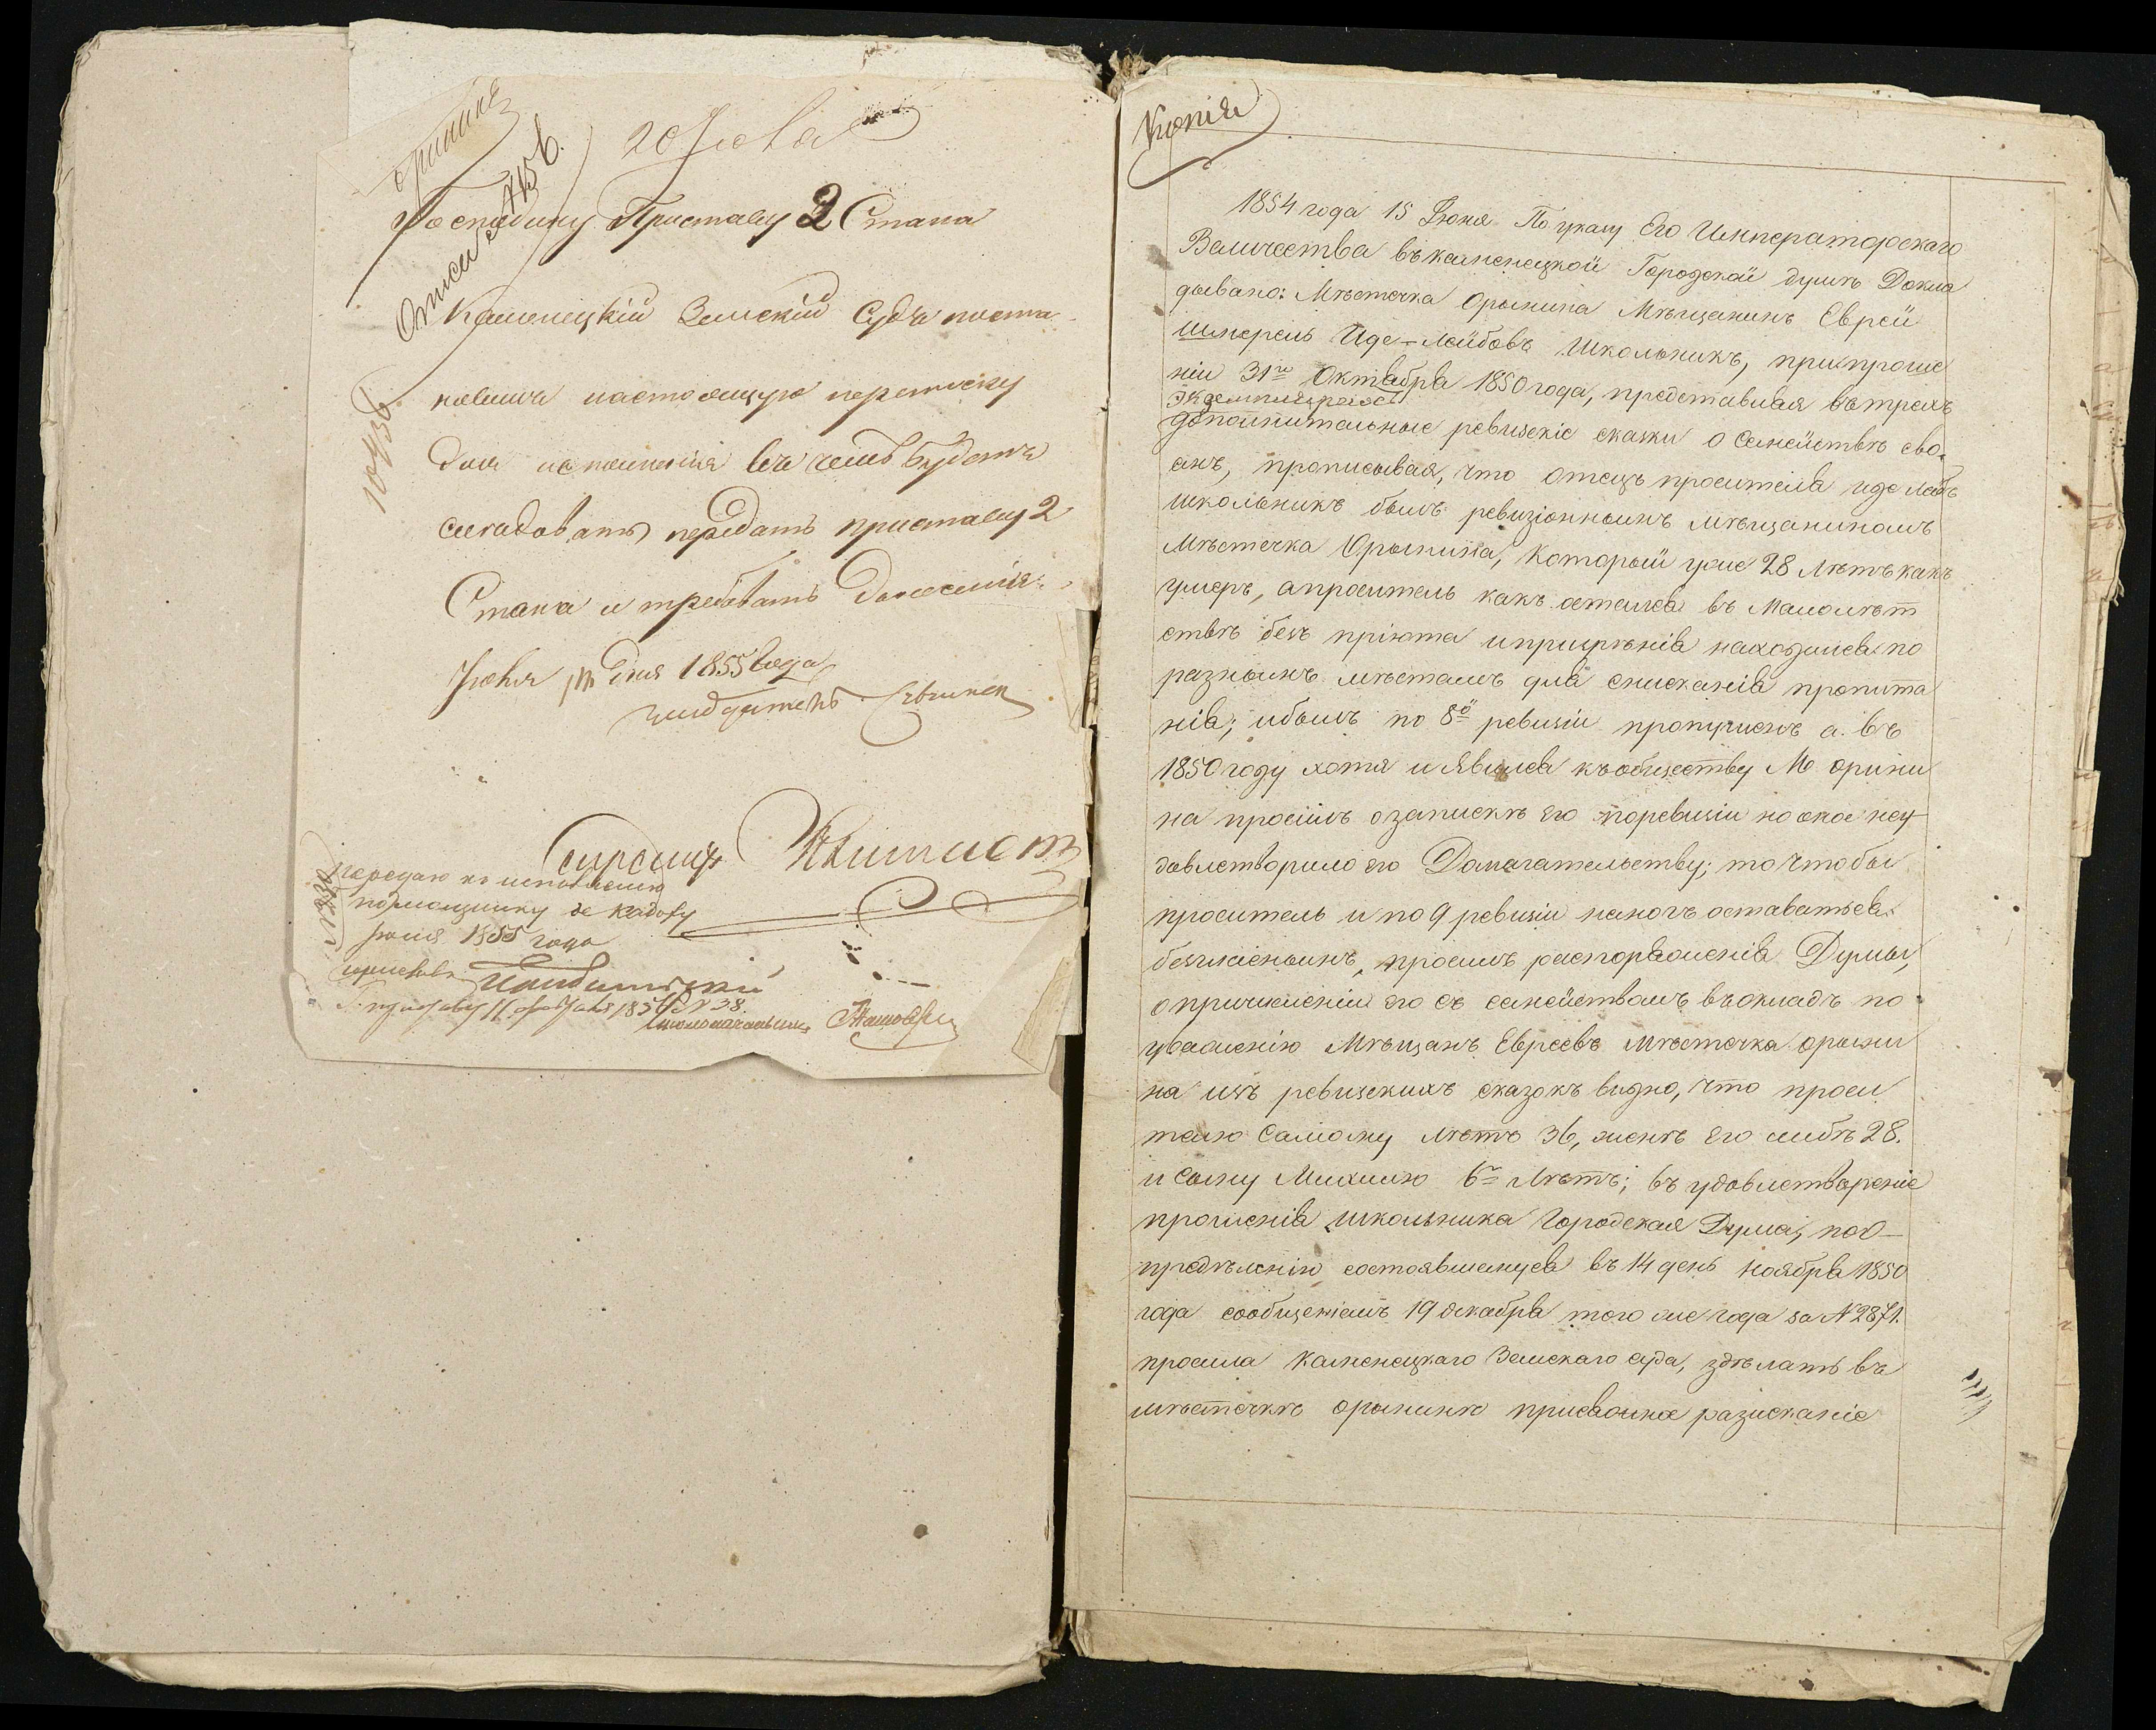 Орынинъ
Описи №156.
20 Июня
Господину Приставу 2 Стана
Каменецкій Земскій Судъ поста
новилъ настоящую переписку
для исполненія въ чемъ будетъ
слѣдовать передать приставу 2
Стана и требовать донесенія
Июня дня 1855 года
10436
Передаю къ исполненію
помощнику
Іюня 1855 года
приставъ
Столоначальникъ
Копія
1854 года 15 Іюня По указу Его Императорскаго
Величества въ каменецкой Городской думѣ Докла
дывано: Мѣстечка Орынина Мѣщанинъ Еврей
Шмерель Иде-Лейбовъ Школьникъ, при проше
ніи 31го Октября 1850 года, представляя въ трехъ
Экземплярахъ
дополнительные ревизскіе сказки о Семействѣ сво
емъ, прописывая, что отецъ просителя иде лейбъ
школьникъ былъ ревизіоннымъ мѣщаниномъ
Мѣстечка Орынина, который уже 28 Лѣтъ какъ
умеръ, а проситель какъ остался въ Малолѣт
ствѣ безъ пріюта и призрѣнія находился по
разнымъ мѣстамъ для снисканія пропита
нія; и былъ по 8й ревизіи пропущенъ а въ
1850 году хотя и Явился къ обществу М орыни
на просилъ о запискѣ его по ревизіи но оное неу
довлетворило его Домагательству; то чтобы
проситель и по 9 ревизіи немогъ оставаться
безгласнымъ, просилъ распоряженія Думы,
о причисленіи его съ семействомъ въ окладъ по
уваженію Мѣщанъ Евреевъ мѣстечка орыни
на изъ ревизскихъ сказокъ видно, что проси
телю Самому Лѣтъ 36, женѣ его либѣ 28.
и Сыну Михилю 6ть Лѣтъ; въ удовлетвореніе
прошенія школьника Городская Дума, по О-
предѣленію состоявшемуся въ 14 день Ноября 1850
года сообщеніемъ 19 декабря того же года за № 2871.
просила Каменецкаго Земскаго суда, здѣлать въ
мѣстечкѣ орынинѣ присяжное разисканіе